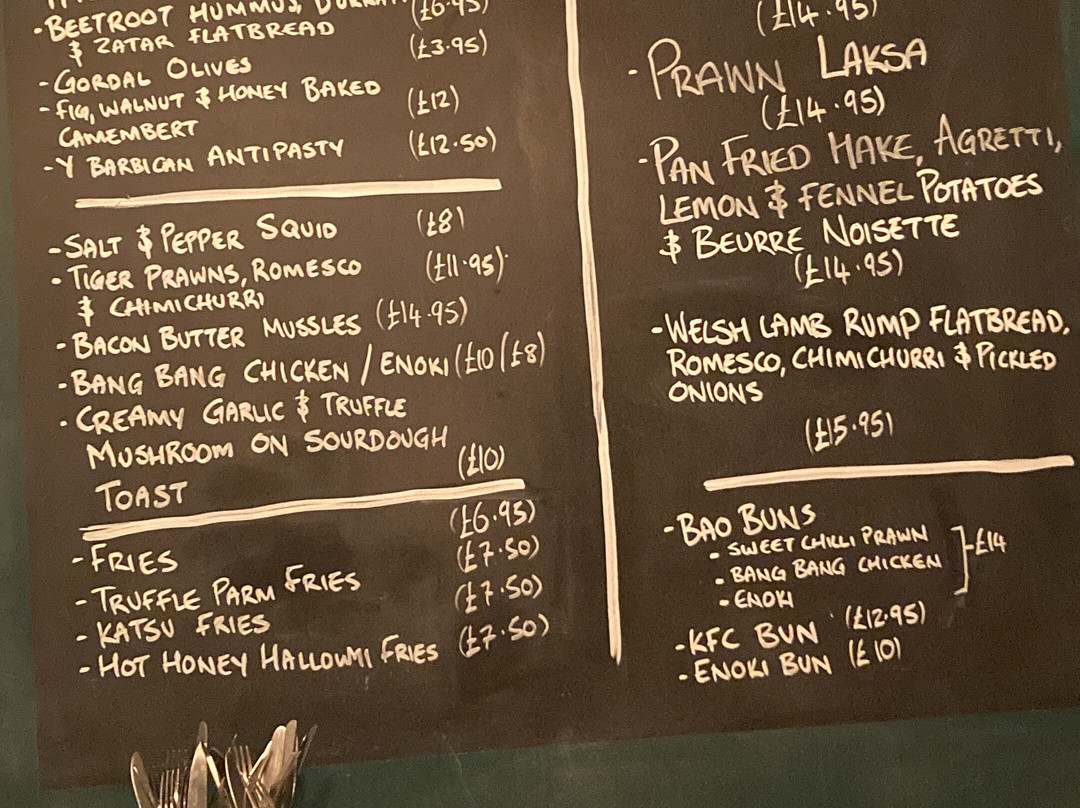 -BEETROOT HUMMUS,
& ZATAR FLATBREAD (£6.95)
-GORDAL OLIVES (£3.95)
-FIG, WALNUT & HONEY BAKED
CAMEMBERT (£12)
-Y BARBICAN ANTIPASTY (£12.50)
-SALT & PEPPER SQUID (£8)
-TIGER PRAWNS, ROMESCO (£11.95)
& CHIMICHURRI
-BACON BUTTER MUSSLES (£14.95)
-BANG BANG CHICKEN / ENOKI (£10/£8)
-CREAMY GARLIC & TRUFFLE
MUSHROOM ON SOURDOUGH
TOAST (£10)
-FRIES (£6.95)
-TRUFFLE PARM FRIES (£7.50)
-KATSU FRIES (£7.50)
-HOT HONEY HALLOUMI FRIES (£7.50)
(£14.95)
-PRAWN LAKSA
(£14.95)
-PAN FRIED HAKE, AGRETTI,
LEMON & FENNEL POTATOES
& BEURRE NOISETTE
(£14.95)
-WELSH LAMB RUMP FLATBREAD,
ROMESCO, CHIMICHURRI & PICKLED
ONIONS
(£15.95)
-BAO BUNS
• SWEET CHILLI PRAWN
• BANG BANG CHICKEN £14
• ENOKI
-KFC BUN (£12.95)
-ENOKI BUN (£10)